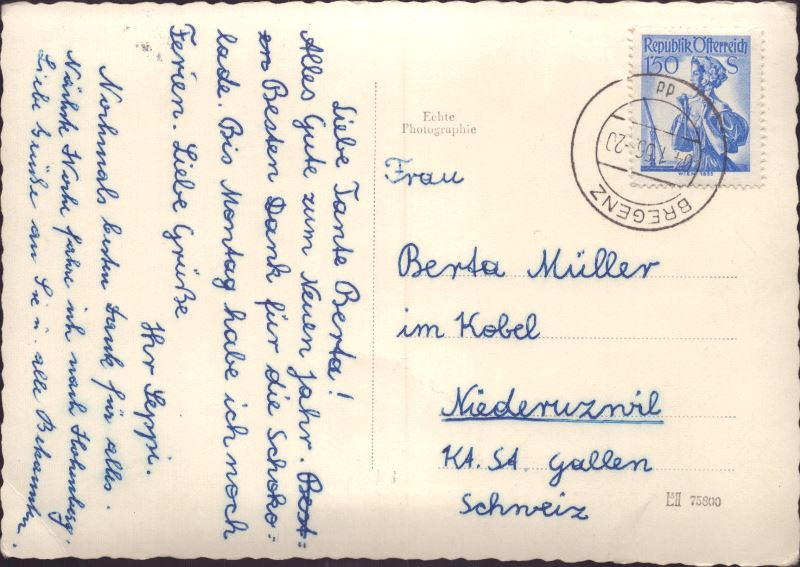 Liebe Tante Berta!
Alles Gute zum Neuen Jahr. Best=
en Besten Dank für die Schoko=
lade. Bis Montag habe ich noch
Ferien. Liebe Grüße
Ihr Seppi.
Nochmals besten Dank für alles.
Nächste Woche fahre ich nach Hohenburg.
Liebe Grüße an Sie u. alle Bekannten.
Echte
Photographie
Republik Österreich
1'50 S
WIEN 1853
BREGENZ
Frau
Berta Müller
im Kobel
Niederuzwil
KA. SA. Gallen
Schweiz
75800